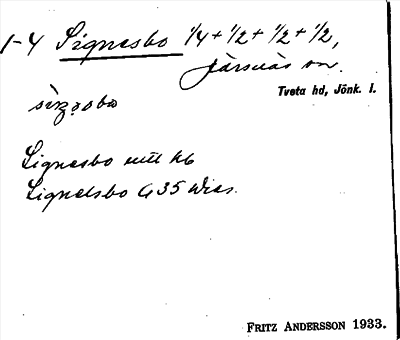 1-4 Signesbo 1/4 + 1/2 + 1/2 + 1/2,
Järsnäs sn.
Tveta hd, Jönk. l.
Signesbo
Signelsbo G 35 Wies.
FRITZ ANDERSSON 1933.